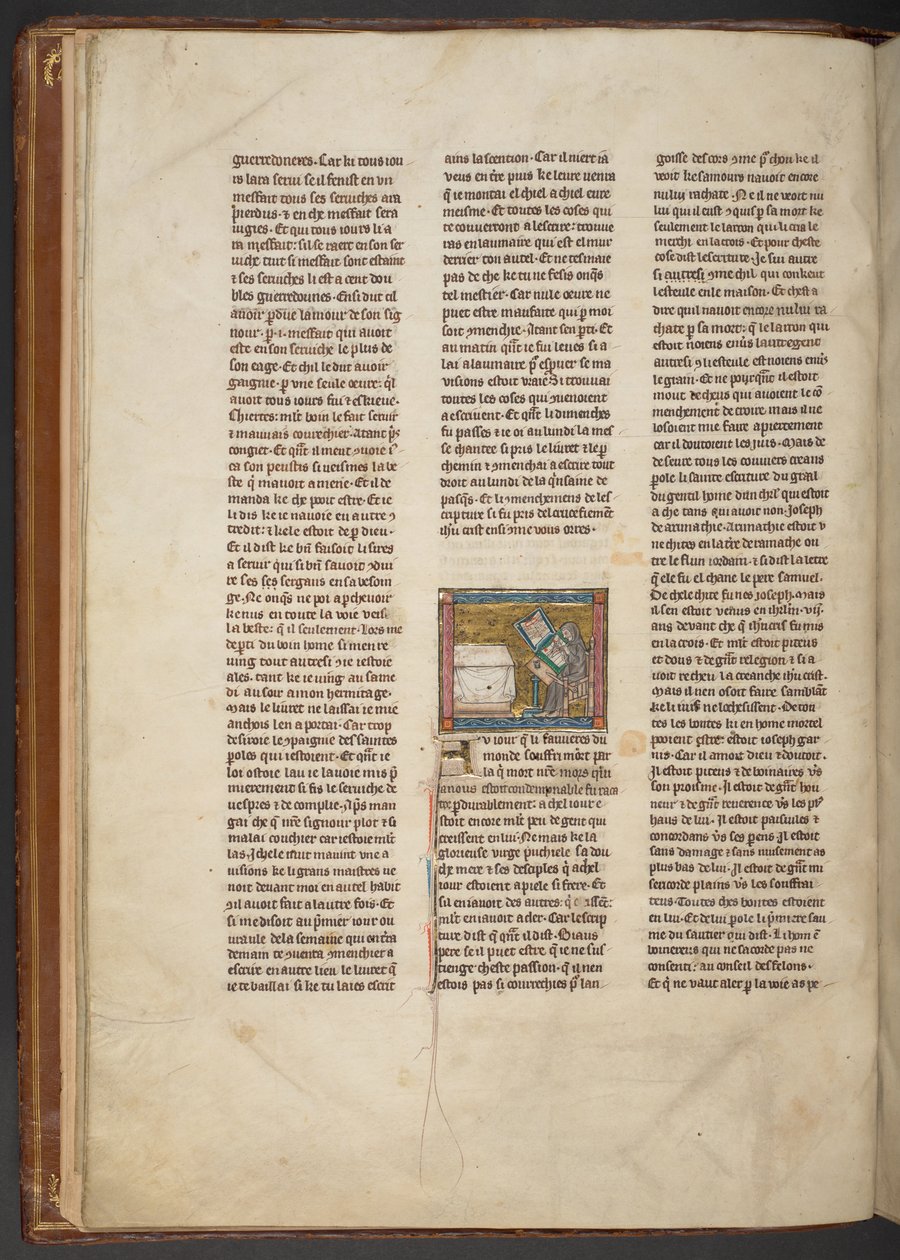 guerredoneres. Car ki tous iou
rs lara serui se il fenist en vn
meffait tous ses seruiches ara
perdus. ⁊ en che meffait sera
iugies. Et qui tous iours li a
ra meffait: sil se raert en son ser
uiche tout si meffait sont estaint
⁊ ses seruiches li est a cent dou
bles guerredounes. Ensi dut cil
auoir ꝑdue lamour de son sig
nour. ꝑ .i. meffait qui auoit
este en son seruiche le plus de
son eage. Et chil le dut auoir
gaignie. ꝑ vne seule oeure: ql
auoit tous iours fui ⁊ eskieue.
Chiertes: mlt boin le fait seruir
⁊ mauuais courechier. Atant pris
congiet. Et qnt il ment ꝯuoie i
ca son peustis si veismes la be
ste q mauoit amene. Et il de
manda ke che pooit estre. Et ie
li dis ke ie nauoie eu autre ꝯ
credit: ⁊ kele estoit de ꝑ dieu.
Et il dist ke bn faisoit li sires
a seruir qui si bn sauoit ꝯdui
re ses sergans en sa besoin
ge. Ne onqs ne poi apcheuoir
ke nus en toute la voie veist
la beste: q il seulement. Lors me
departi du boin home si men re
uing tout autresi ꝯ ie iestoie
ales. tant ke ie uing au same
di au soir a mon hermitage.
Mais le liuret ne laissai ie mie
anchois len aportai. Car trop
desiroie le ꝯpaignie des saintes
poles qui iestoient. Et qnt ie
loi ostoie lau ie lauoie mis p
mierement si fis le seruiche de
uespres ⁊ de complie. Aps man
gai che q nre signour plot ⁊ si
malai couchier car iestoie mlt
las. Ichele nuit mauint vne a
uisions ke li grans maistres ve
noit deuant moi en autel habit
ꝯ il auoit fait alautre fois. Et
si me disoit au pmier iour ou
uraule de la semaine qui entra
demain te ꝯuenra ꝯmenchier a
escrire en autre lieu le liuret q
ie te baillai si ke tu laies escrit
ains lascention. Car il niert ia
veus en tre puis ke leure uenra
q ie montai el chiel a chiel eure
meisme. Et toutes les coses qui
te couuerront a lescrire: trouue
ras en laumaire qui est el mur
derrier ton autel. Et ne tesmaie
pas de che ke tu ne fesis onqs
tel mestier. Car nule oeure ne
puet estre maufaite qui ꝑ moi
soit ꝯmenchie. Atant sen parti. Et
au matin qnt ie fui leues si a
lai alaumaire pr espruer se ma
visions estoit vraie. Si trouuai
toutes les coses qui ꝯuenoient
a escriuent. Et qnt li dimenches
fu passes ⁊ ie oi au lundi la mes
se chantee si pris le liuret ⁊ le ꝑ
chemin ⁊ ꝯmenchai a escrire tout
droit au lundi de la qnsaine de
pasqs. Et li ꝯmenchemens de les
cripture si fu pris del crucefiement
ihu crist ensi ꝯme vous orres.
Av iour q li sauueres du
monde souffri mort par
la q mort nre mors q lui
a nous estoit condempnable fu raca
tee ꝑdurablement: a chel iour e
stoit encore mlt peu de gent qui
creissent en lui. Ne mais ke la
glorieuse virge puchiele sa dou
che mere ⁊ ses desciples q a chel
iour estoient apiele si frere. Et
sil en i auoit des autres:
mlt en i auoit a der. Car lescrip
ture dist q qnt il dist. Biaus
pere se il puet estre. q ie ne sus
tienge cheste passion. q il nen
estois pas si courrechies pr lan
goisse des cors ꝯme pr chou ke il
veoit ke samours nauoit encore
nului rachate. Ne il ne veoit nu
lui qui il eust ꝯquis ꝑ sa mort ke
seulement le larron qui li cria le
merchi en la crois. Et pour cheste
cose dist lescriture. Je sui autre
si autresi ꝯme chil qui conkeut
lesteule en le maison. Et chest a
dire quil nauoit encore nului ra
chate ꝑ sa mort: q le larron qui
estoit noiens enuers lautre gent
autresi ꝯ li esteule est noiens enuers
le grain. Et ne pourqnt il estoit
mout de cheus qui auoient le co
menchement de croire mais il ne
losoient mie faire apiertement
car il doutoient les juis. Mais de
deseure tous les couuiers creans
pole li sainte escriture du graal
du gentil home dun chrl qui estoit
a che tans qui auoit non. Joseph
de arimathie. Arimathie estoit v
ne chites en la tre de ramathe ou
tre le flun iordain. ⁊ si dist la lettre
q ele fu el chane le pere samuel.
De chele chite fu nes joseph. Mais
il sen estoit venus en ihrlm. vij.
ans deuant che q ihucris fu mis
en la crois. Et mlt estoit piteus
et dous ⁊ de gnt relegion ⁊ si a
uoit recheu la creanche ihu crist.
Mais il nen osoit faire samblant
ke li iuis ne lochesissent. De tou
tes les bontes ki en home mortel
pooient estre: estoit ioseph gar
nis. Car il amoit dieu ⁊ doutoit.
Il estoit piteus ⁊ de boinaires vs
son proisme. Il estoit de gnt hou
neur ⁊ de gnt reuerence vs les pl
haus de lui. Il estoit paisiules ⁊
concordans vs ses pers. Il estoit
sans damage ⁊ sans nuisement as
plus bas de lui. Il estoit de gnt mi
sericorde plains vs les souffrai
teus. Toutes ches bontes estoient
en lui. Et de lui pole li pmiere sau
me du sautier qui dist. Li hom e
boineures qui ne sacorde pas ne
consent: au conseil des felons.
Et q ne vaut aler ꝑ la voie as pe